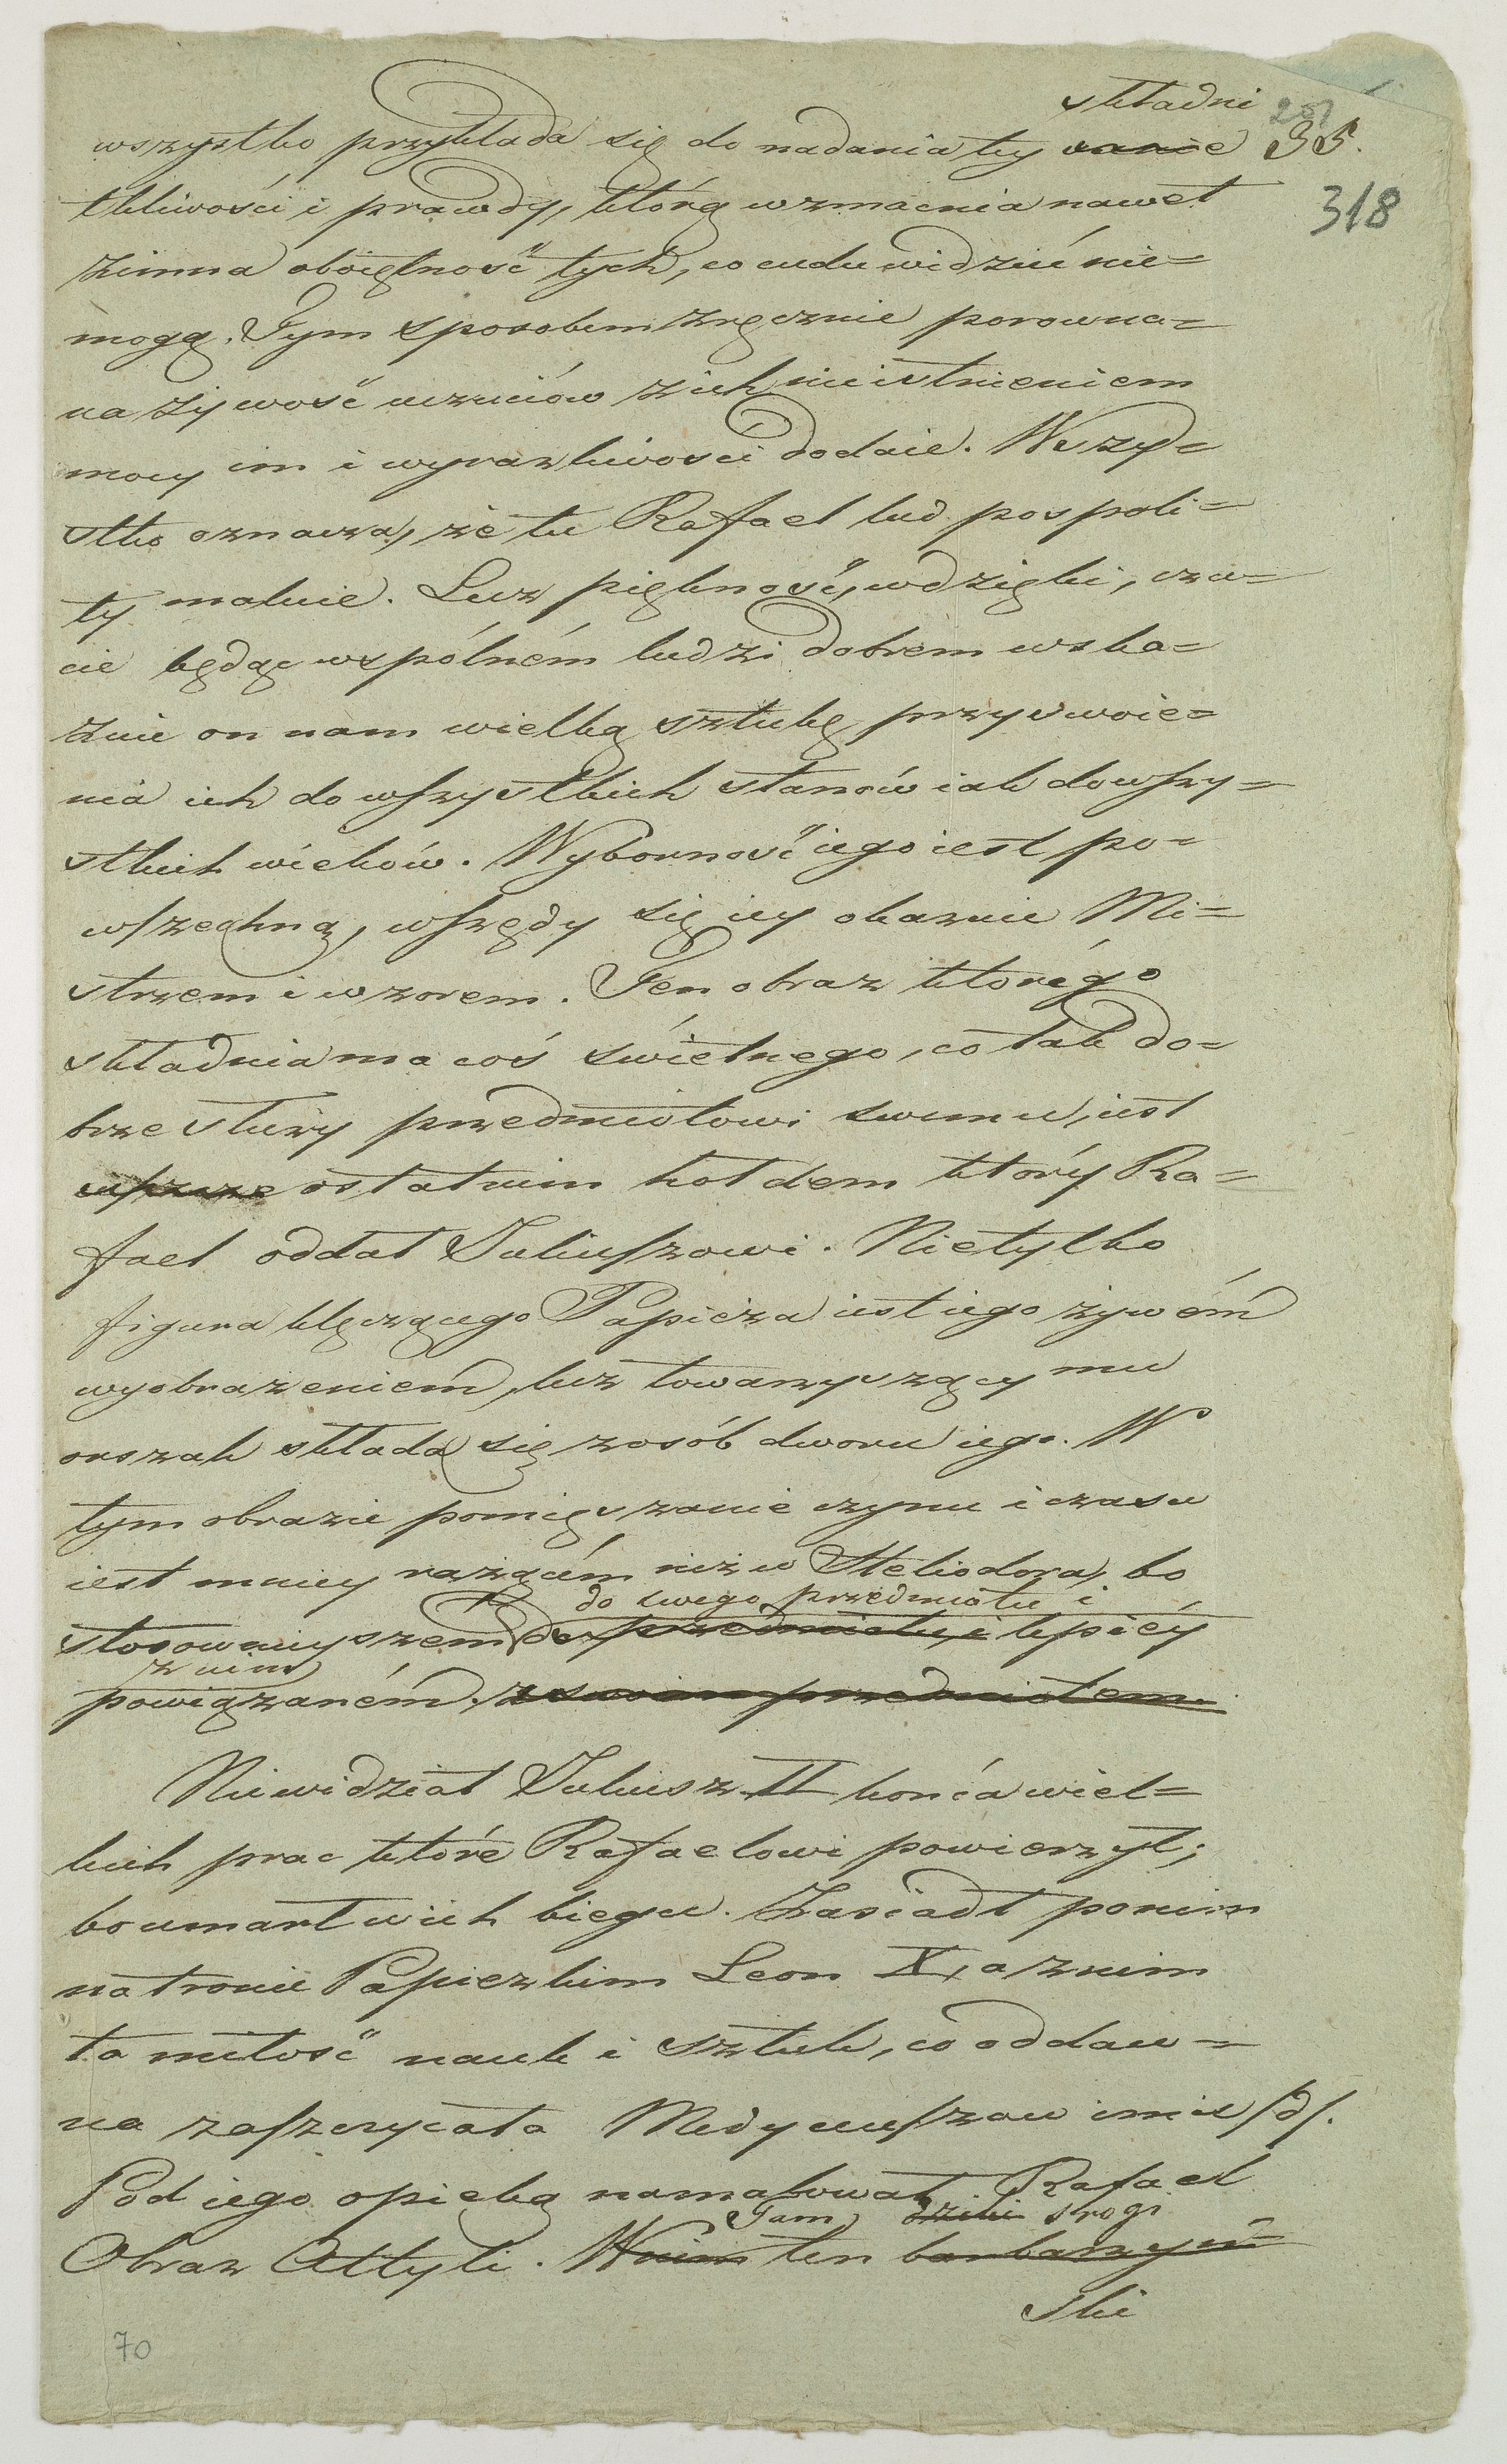 składni
wszystko przykłada się do nadania tey 35.
207
318
tkliwości i prawdy, którą wzmacnia nawet
zimna oboiętność tych, co cudu widzieć nie=
mogą. Tym sposobem zręcznie porowna=
na żywość uczuciów z ich nieistnieniem
mocy im i wyrazliwości dodaie. Wszy=
stko oznacza, że tu Rafael lud pospoli=
ty maluie. Lecz piękność, wdzięki, czu=
cie będąc wspólném ludzi dobrem wska=
zuie on nam wielką sztukę przyswoie=
nia ich do wszystkich stanów iak do wszy=
stkich wieków. Wyborność iego iest po=
wszechną, wszędy się iey okazuie Mi=
strzem i wzorem. Ten obraz którégo
składnia ma coś świetnego, co tak do=
brze służy przedmiotowi swemu, iest
ostatnim hołdem który Ra=
fael oddał Juliuszowi. Nietylko
figura klęczącego Papieża iest iego żywém
wyobrażeniem, lecz towarzyszący mu
orszak składa się z osób dworu iego. W
tym obrazie pomięszanie czynu i czasu
iest mniey rażącém niż w Heliodora, bo
do swego przedmiotu i
stosownieyszem do przedmiotu, i lepiéy
z nim
powiązaném. z swoim przedmiotem.
Niewidział Juliusz II końca wiel=
kich prac które Rafaelowi powierzył;
bo umarł w ich biegu. Zasiadł po nim
na tronie Papiezkim Leon X, a z nim
ta miłość nauk i sztuk, co oddaw=
na zaszczycała Medyceuszow imie /d/.
Pod iego opieką namalował Rafael
Tam dziki srogi
Obraz Attyli. W nim ten barbarzyń=
ski
70